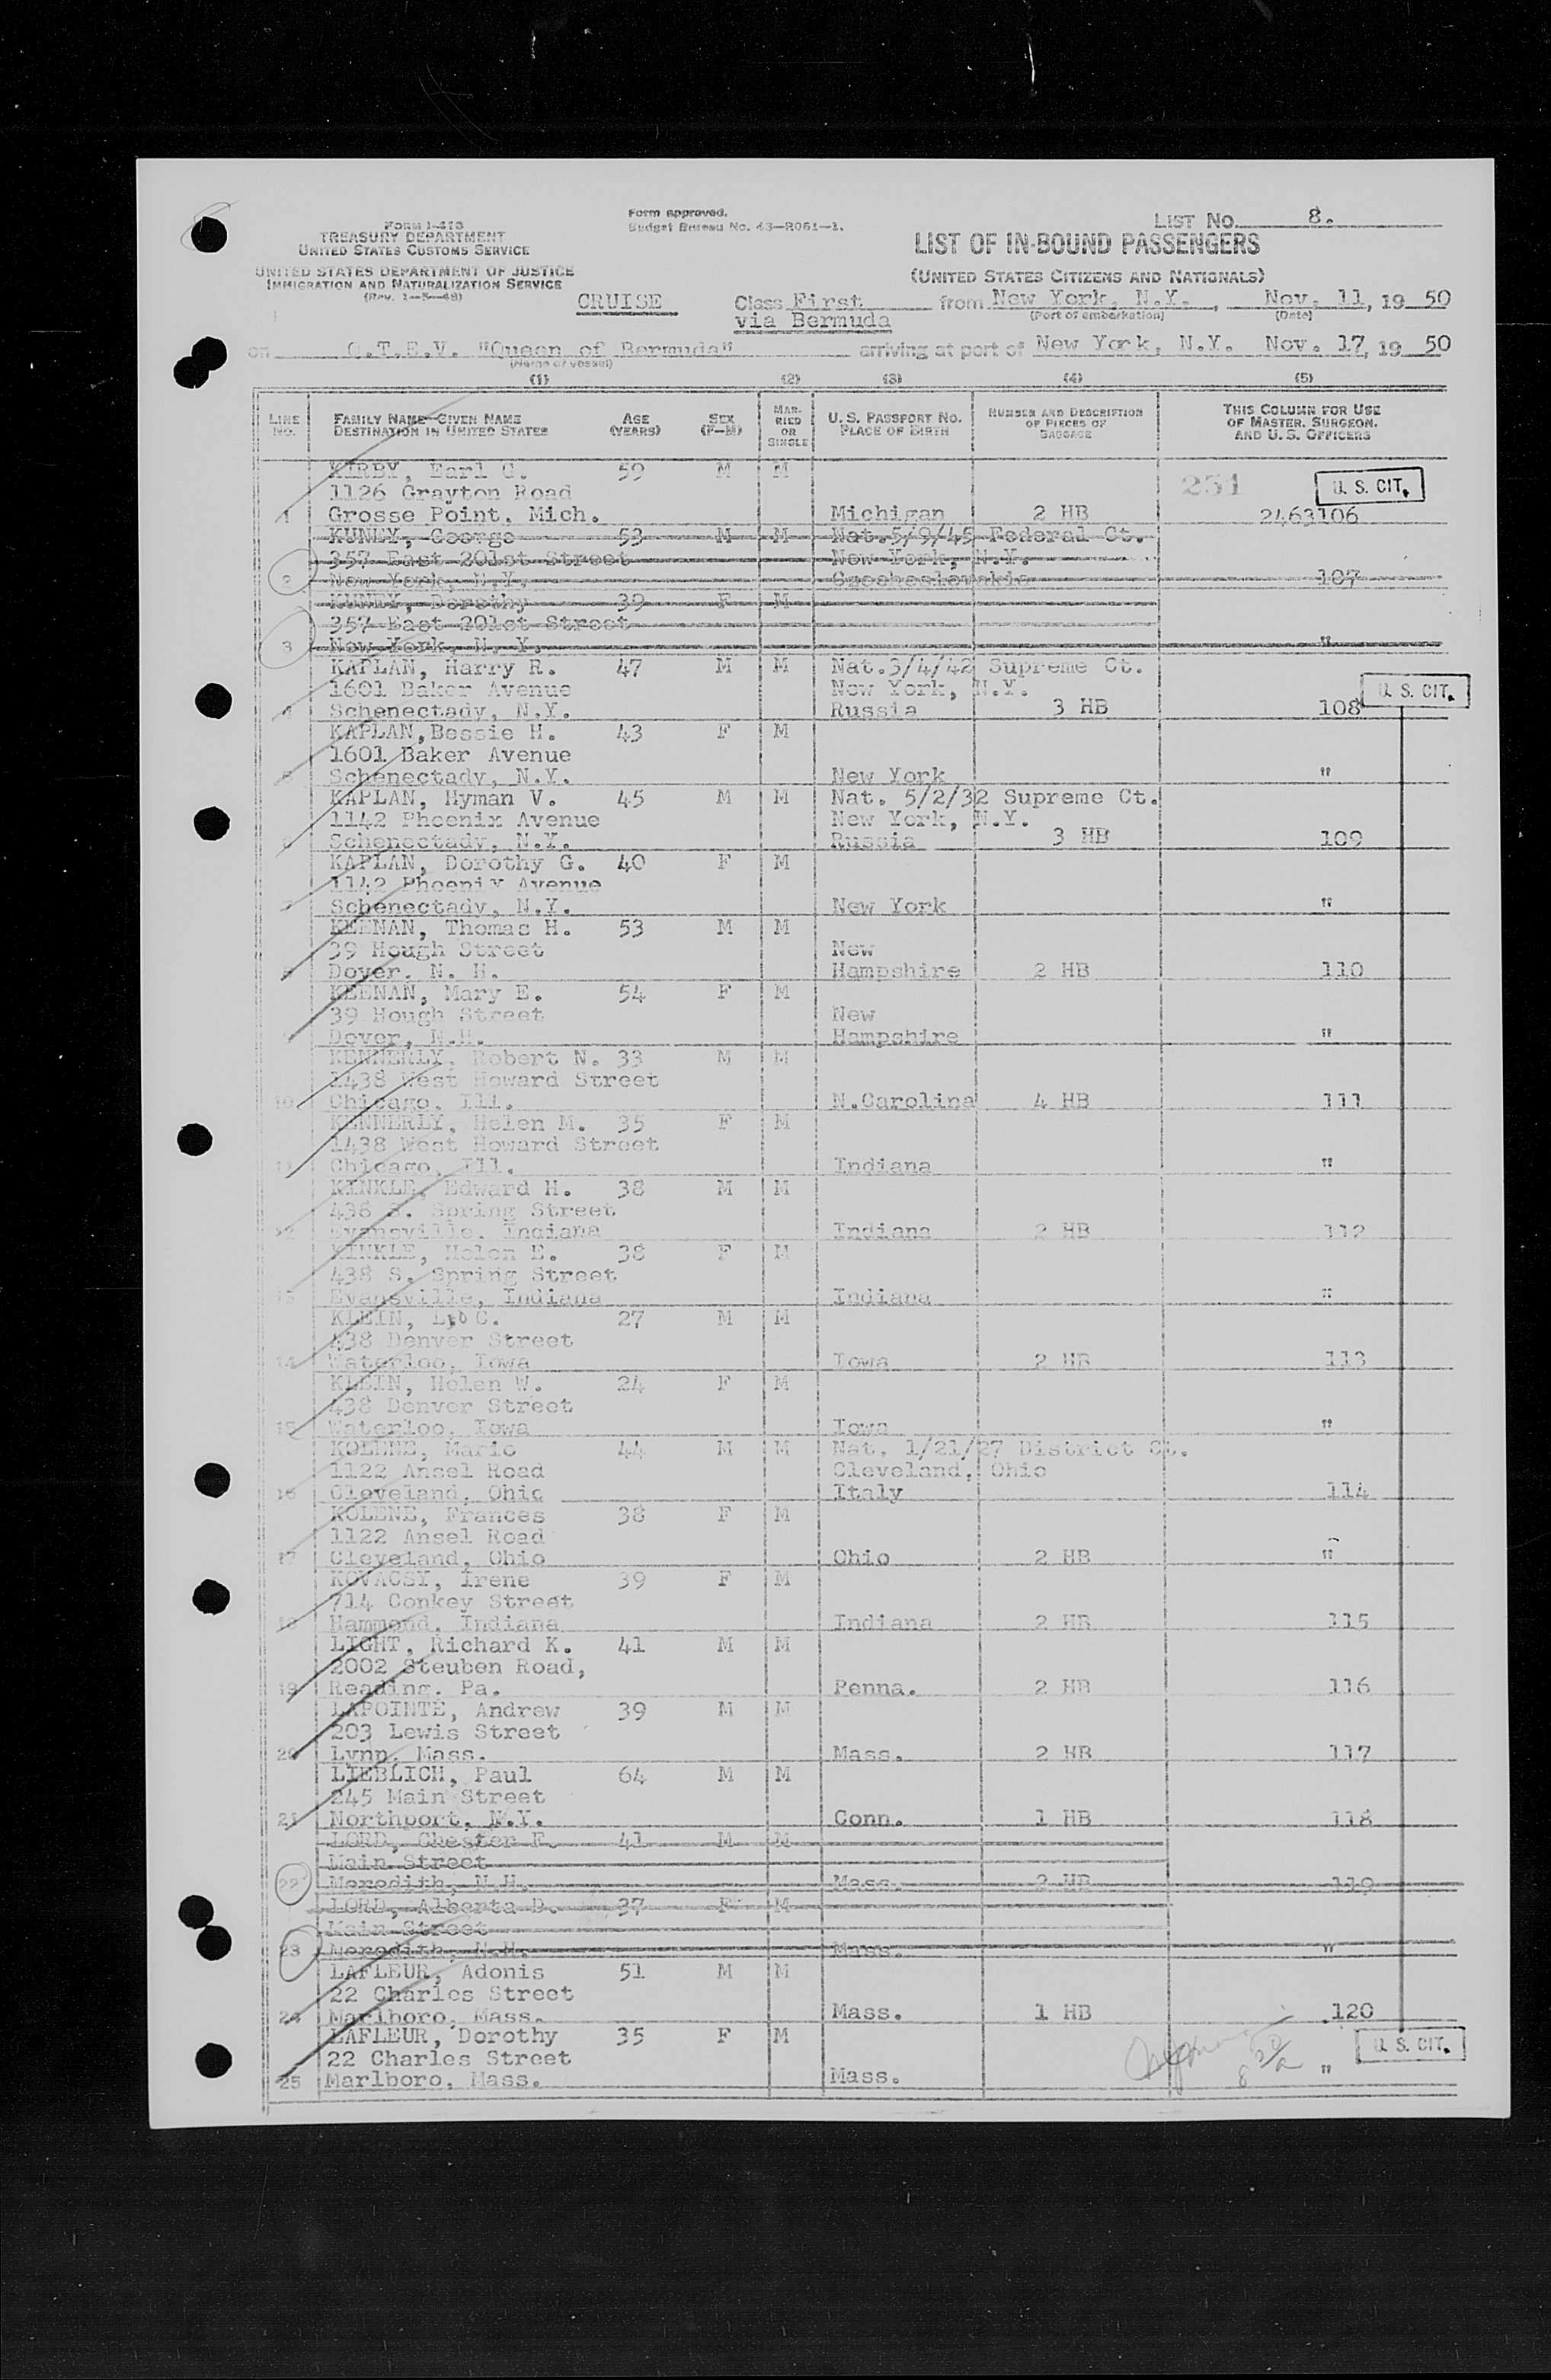 LIST No. 8.
Form I-418
TREASURY DEPARTMENT
UNITED STATES CUSTOMS SERVICE
UNITED STATES DEPARTMENT OF JUSTICE
IMMIGRATION AND NATURALIZATION SERVICE
(Rev. 1-5-48)
Form approved.
Budget Bureau No. 43-R061-1.
LIST OF IN-BOUND PASSENGERS
(UNITED STATES CITIZENS AND NATIONALS)
CRUISE Class First from New York, N.Y., Nov. 11, 19 50
via Bermuda (Port of embarkation) (Date)
on Q.T.E.V. "Queen of Bermuda" arriving at port of New York, N.Y. Nov. 17, 19 50
(Name of vessel)
(1) (2) (3) (4) (5)
LINE NO. FAMILY NAME—GIVEN NAME DESTINATION IN UNITED STATES AGE (YEARS) SEX (F-M) MARRIED OR SINGLE U. S. PASSPORT NO. PLACE OF BIRTH NUMBER AND DESCRIPTION OF PIECES OF BAGGAGE THIS COLUMN FOR USE OF MASTER, SURGEON, AND U. S. OFFICERS
KIRBY, Earl C. 59 M M
1126 Grayton Road 251 U. S. CIT.
1 Grosse Point, Mich. Michigan 2 HB 2463106
KUNDY, George 53 M M Nat.5/9/45 Federal Ct.
357 East 201st Street New York, N.Y.
2 New York, N.Y. Czechoslovakia 107
KUNDY, Dorothy 39 F M
357 East 201st Street
3 New York, N. Y. "
KAPLAN, Harry R. 47 M M Nat.3/4/42 Supreme Ct.
1601 Baker Avenue New York, N.Y. U. S. CIT.
4 Schenectady, N.Y. Russia 3 HB 108
KAPLAN,Bessie H. 43 F M
1601 Baker Avenue
5 Schenectady, N.Y. New York "
KAPLAN, Hyman V. 45 M M Nat. 5/2/32 Supreme Ct.
1142 Phoenix Avenue New York, N.Y.
6 Schenectady, N.Y. Russia 3 HB 109
KAPLAN, Dorothy G. 40 F M
1142 Phoenix Avenue
7 Schenectady, N.Y. New York "
KEENAN, Thomas H. 53 M M
39 Hough Street New
8 Dover, N. H. Hampshire 2 HB 110
KEENAN, Mary E. 54 F M
39 Hough Street New
Dover, N.H. Hampshire "
KENNERLY, Robert N. 33 M M
1438 West Howard Street
10 Chicago, Ill. N.Carolina 4 HB 111
KENNERLY, Helen M. 35 F M
1438 West Howard Street
11 Chicago, Ill. Indiana "
KINKLE, Edward H. 38 M M
438 S. Spring Street
12 Evansville, Indiana Indiana 2 HB 112
KINKLE, Helen E. 38 F M
438 S. Spring Street
13 Evansville, Indiana Indiana "
KLEIN, Leo C. 27 M M
438 Denver Street
14 Waterloo, Iowa Iowa 2 HB 113
KLEIN, Helen W. 24 F M
438 Denver Street
15 Waterloo, Iowa Iowa "
KOLENE, Mario 44 M M Nat. 1/21/27 District Ct.
1122 Ansel Road Cleveland, Ohio
16 Cleveland, Ohio Italy 114
KOLENE, Frances 38 F M
1122 Ansel Road
17 Cleveland, Ohio Ohio 2 HB "
KOVACSY, Irene 39 F M
714 Conkey Street
18 Hammond, Indiana Indiana 2 HB 115
LIGHT, Richard K. 41 M M
2002 Steuben Road,
19 Reading, Pa. Penna. 2 HB 116
LAPOINTE, Andrew 39 M M
203 Lewis Street
20 Lynn, Mass. Mass. 2 HB 117
LIEBLICH, Paul 64 M M
245 Main Street
21 Northport, N.Y. Conn. 1 HB 118
LORD, Chester F. 41 M M
Main Street
22 Meredith, N.H. Mass. 2 HB 119
LORD, Alberta D. 37 F M
Main Street
23 Meredith, N.H. Mass. "
LAFLEUR, Adonis 51 M M
22 Charles Street
24 Marlboro, Mass. Mass. 1 HB 120
LAFLEUR, Dorothy 35 F M
22 Charles Street U. S. CIT.
25 Marlboro, Mass. Mass. "